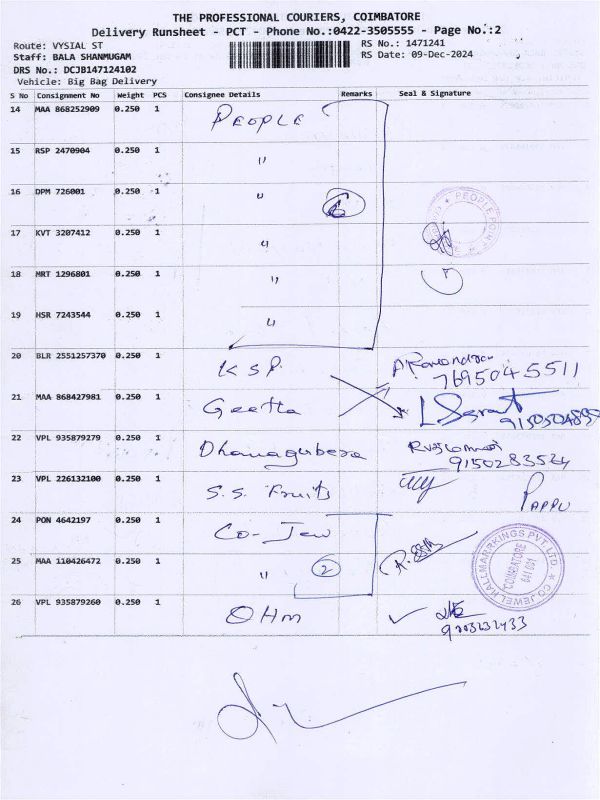 THE PROFESSIONAL COURIERS, COIMBATORE
Delivery Runsheet - PCT - Phone No.:0422-3505555 - Page No.:2
Route: VYSIAL ST
RS No.: 1471241
Staff: BALA SHANMUGAM
RS Date: 09-Dec-2024
DRS No.: DCJB147124102
Vehicle: Big Bag Delivery
S No Consignment No Weight PCS Consignee Details Remarks Seal & Signature
14 MAA 868252909 0.250 1 PEOPLE
15 RSP 2470904 0.250 1 "
16 DPM 726001 0.250 1 " 6
PEOPLE POINT
17 KVT 3207412 0.250 1 "
18 MRT 1296801 0.250 1 "
19 HSR 7243544 0.250 1 "
20 BLR 2551257370 0.250 1 KSP.
7695045511
21 MAA 868427981 0.250 1 Geetha
22 VPL 935879279 0.250 1
9150283524
23 VPL 226132100 0.250 1 S.S. Fruits PAPPU
24 PON 4642197 0.250 1 CO-Jew
25 MAA 110426472 0.250 1 " 2
CO JEWEL HALLMARRKINGS PVT. LTD
COIMBATORE
641 001
26 VPL 935879260 0.250 1 OHm